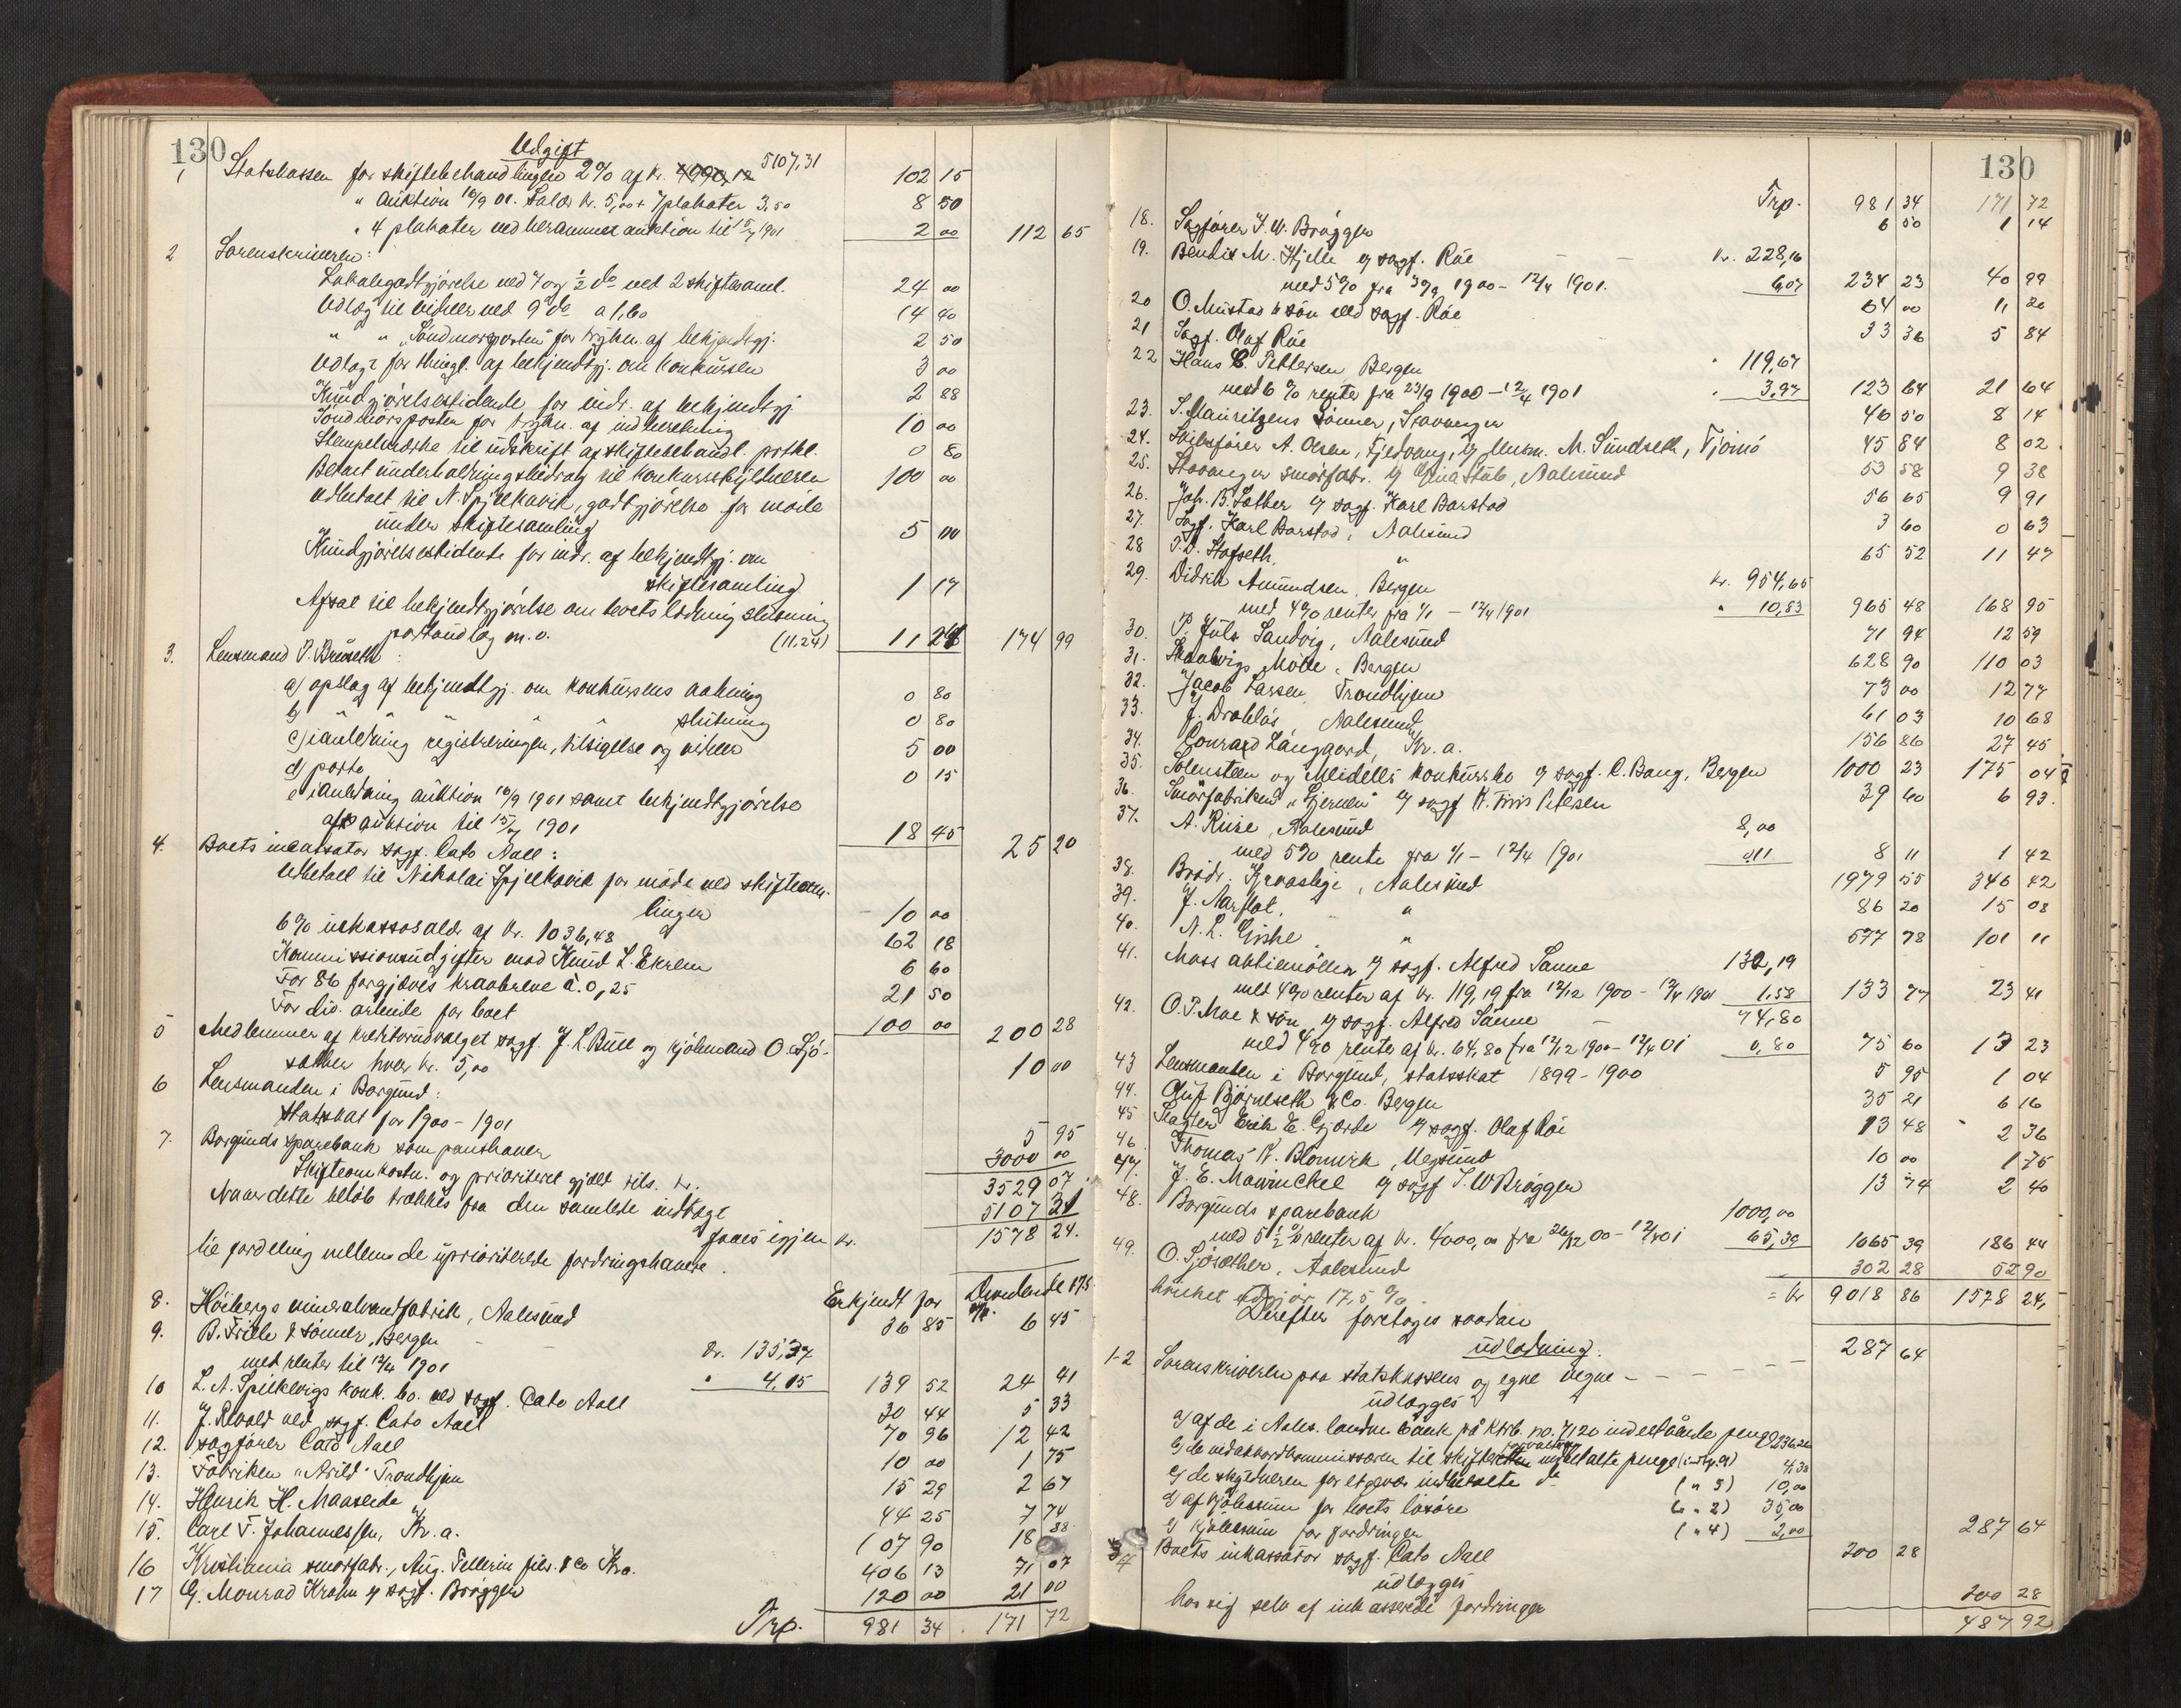 130
Udgift
1 Statskassen for skiftebehandlingen 2% af kr. 4990,12 5107,31 102 15
" Auktion 10/9 01. Salær kr. 5,00 + 7 plakater 3,50 8 50
" 4 plakater ved berammet auktion til 15/7 1901 2 00 112 65
2 Sorenskriveren:
Lokalegodtgjørelse ved 7 og 1/2 do ved 2 skiftesaml. 24 00
Udlæg til vidner ved 9 do a 1,60 14 40
" " "Søndmørsposten" for trykn. af bekjendtgj. 2 50
Udlagt for thingl. af bekjendtgj. om konkursen 3 00
Kundgjørelsestidende for indr. af bekjendtgj. 2 88
Søndmørsposten for trykn. af indberetning 10 00
Stempelmærke til udskrift af skiftebehandl. prtkl. 0 80
Betalt underholdningsbidrag til konkursskyldneren 100 00
Udbetalt til N. Spjelkavik, godtgjørelse for møde
under skiftesamling 5 00
Kundgjørelsestidende for indr. af bekjendtgj. om
skiftesamling 1 17
Afsat til bekjendtgjørelse om boets lodning slutning
portoudlæg m.v. (11,24) 11 24 174 99
3. Lensmand P. Bruseth:
a) opslag af bekjendtgj. om konkursens aabning 0 80
b) " " " " slutning 0 80
c) i anledning registreringen, tilsigelse og vidner 5 00
d) porto 0 15
e) i anledning auktion 10/9 1901 samt bekjendtgjørelse
af auktion til 15/7 1901 18 45 25 20
4. Boets incassator sagf. Cato Aall:
Udbetalt til Nikolai Spjelkavik for møde ved skiftesam-
linger 10 00
6% inkassosalær af kr. 1036,48 62 18
Kommissionsudgifter mod Knud L. Ekrem 6 60
For 86 forgjæves kravbreve à 0,25 21 50
For div. arbeide for boet 100 00 200 28
5 Medlemmer af kreditorudvalget sagf. J. L. Bull og kjøbmand O. Sjö-
sæther hver kr. 5,00 10 00
6 Lensmanden i Borgund:
Statsskat for 1900-1901 5 95
7. Borgunds sparebank som panthaver 3000 00
Skifteomkostn. og prioriteret gjæld tils. kr. 3529 07
Naar dette beløb trækkes fra den samlede indtægt 5107 31
faaes igjen kr. 1578 24.
til fordeling mellem de uprioriterede fordringshavere.
Erkjendt for Dividende 17,5 %
8. Höibergs mineralvandfabrik, Aalesund 36 85 6 45
9. B. Friele & sønner, Bergen kr. 135,37
med renter til 12/4 1901 " 4,15 139 52 24 41
10 L. A. Spjelkevigs konk. bo. ved sagf. Cato Aall 30 44 5 33
11. J. Revold ved sagf. Cato Aall 70 96 12 42
12. sagfører Cato Aall 10 00 1 75
13. Fabriken "Arild" Trondhjem 15 29 2 67
14. Henrik H. Maaseide 44 25 7 74
15. Carl F. Johannessen, Kr.a. 107 90 18 88
16 Kristiania smørfabr., Aug. Pellerin fils & Co Kra. 406 13 71 07
17 G. Monrad Krohn v/ sagf. Brøgger 120 00 21 00
Trp. 981 34 171 72
130
Trp. 981 34 171 72
18. Sagfører I. W. Brøgger 6 50 1 14
19. Bendix M. Hjelle v/ sagf. Røe kr. 228,16
med 5% fra 30/9 1900 - 12/4 1901. 6,07 234 23 40 99
20 O. Mustad & søn ved sagf. Røe 64 00 11 20
21 Sagf. Olaf Røe 33 36 5 84
22 Hans C. Pettersen Bergen " 119,67
med 6% renter fra 23/9 1900 - 12/4 1901 " 3,97 123 64 21 64
23. S. Mauritzens sønner, Stavanger 46 50 8 14
24. Skibsfører A. Olsen, Fjedvang, v/ lensm. M. Sundseth, Tjømö 45 84 8 02
25. Stavanger smørfabr. v/ Stub, Aalesund 53 58 9 38
26. Joh. B. Sæther v/ sagf. Karl Barstad 56 65 9 91
27. Sagf. Karl Barstad, Aalesund 3 60 0 63
28 P. O. Stafseth, " 65 52 11 47
29. Didrik Amundsen, Bergen kr. 954,65
med 4% renter fra 1/1 - 12/4 1901 " 10,83 965 48 168 95
30. P. Juls Sandvig, Aalesund 71 94 12 59
31. Skaalvigs Mölle, Bergen 628 90 110 03
32. Jacob Larsen Trondhjem 73 00 12 77
33. J. Drabløs, Aalesund 61 03 10 68
34. Conrad Langaard, Kr.a. 156 86 27 45
35. Tolensteen og Meidells konkursbo v/ sagf. C. Bang, Bergen 1000 23 175 04
36. Smørfabriken "Stjernen" v/ sagf K. Friis Petersen 39 60 6 93.
37. A. Riise, Aalesund 8,00
med 5% rente fra 1/1 - 12/4 1901 0,11 8 11 1 42
38. Brødr. Kjervaslige, Aalesund 1979 55 346 42
39. J. Aarflot, " 86 20 15 08
40. N. L. Giske " 577 78 101 11
41. Moss aktiemøllen v/ sagf. Alfred Sanne 132,19
med 4% renter af kr. 119,19 fra 12/12 1900 - 12/4 1901 1,58 133 77 23 41
42. O. P. Moe & søn v/ sagf. Alfred Sanne 74,80
med 4% renter af kr. 64,80 fra 12/12 1900 - 12/4 01 0,80 75 60 13 23
43 Lensmanden i Borgund, statsskat 1899-1900 5 95 1 04
44. Oluf Bjørneseth & Co. Bergen 35 21 6 16
45 Slagter Erik E. Gjærde v/ sagf. Olaf Røe 13 48 2 36
46. Thomas K. Blomvik, Aalesund 10 00 1 75
47. J. E. Mowinckel v/ sagf I. W. Brøgger 13 74 2 40
48. Borgunds sparebank 1000,00
med 5 1/2 % renter af kr. 4000,00 fra 26/12 00 - 12/4 01 65,39 1065 39 186 44
49. O. Sjøsæther, Aalesund 302 28 52 90
hvilket udgjør 17,5 % = kr 9018 86 1578 24,
Derefter foretoges saadan
udlodning.
1-2 Sorenskriveren paa statskassens og egne vegne 287 64
udlægges
a) af de i Aales. landm. bank på ktrb. no. 7120 indestående penge 236,26
b) de ved akkordkommissæren til skifteretten indbetalte penge 4,38
c) de skyldneren for et gevær indbetalte do (" 3) 10,00
d) af kjøbesum for boets løsøre (" 2) 35,00
e) kjøbesum for fordringer (" 4) 2,00 287 64
3-4 Boets inkassator sagf. Cato Aall 200 28
udlægges
hos sig selv af inkasserede fordringer 200 28
487 92